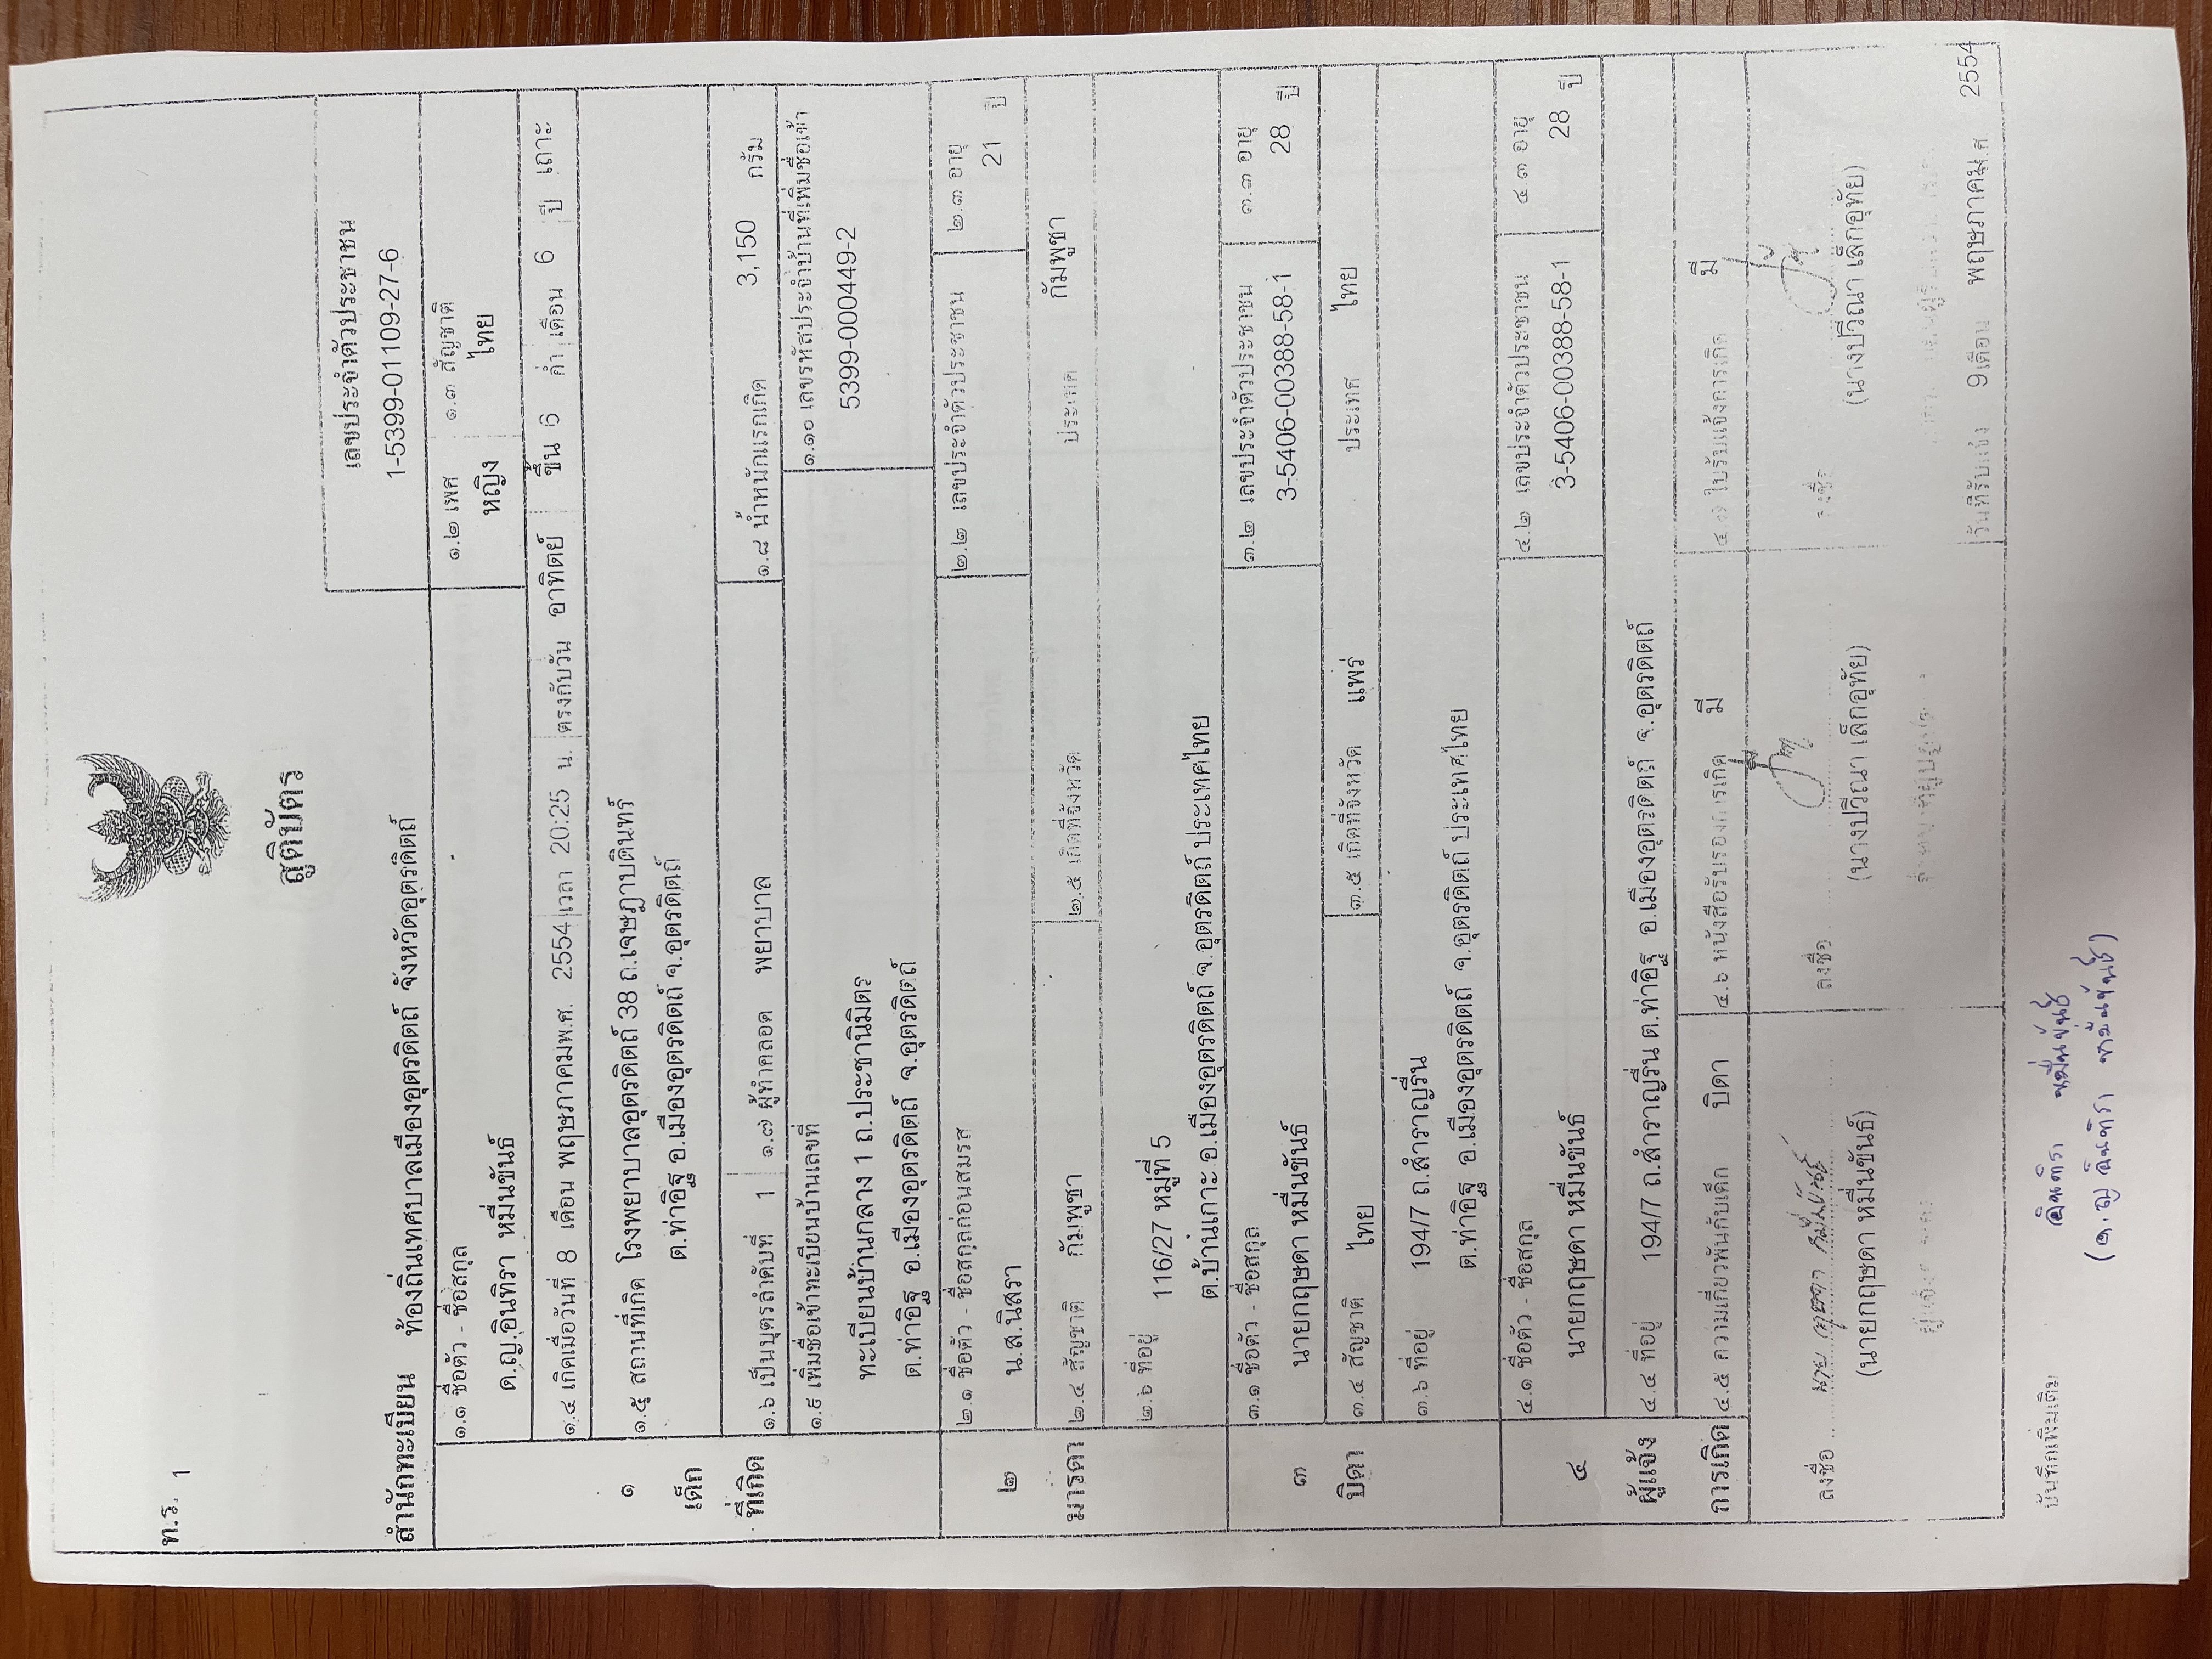 ท.ร. 1
สูติบัตร
สำนักทะเบียน ท้องถิ่นเทศบาลเมืองอุตรดิตถ์ จังหวัดอุตรดิตถ์
เลขประจำตัวประชาชน
1-5399-01109-27-6
๑
เด็ก
ที่เกิด
๑.๑ ชื่อตัว - ชื่อสกุล
ด.ญ.อินทิรา หมื่นขันธ์
๑.๒ เพศ
หญิง
๑.๓ สัญชาติ
ไทย
๑.๔ เกิดเมื่อวันที่ 8 เดือน พฤษภาคม พ.ศ. 2554 เวลา 20:25 น. ตรงกับวัน อาทิตย์ ขึ้น 6 ค่ำ เดือน 6 ปี เถาะ
๑.๕ สถานที่เกิด โรงพยาบาลอุตรดิตถ์ 38 ถ.เจษฎาบดินทร์
ต.ท่าอิฐ อ.เมืองอุตรดิตถ์ จ.อุตรดิตถ์
๑.๖ เป็นบุตรลำดับที่ 1 ๑.๗ ผู้ทำคลอด พยาบาล ๑.๘ น้ำหนักแรกเกิด 3,150 กรัม
๑.๙ เพิ่มชื่อเข้าทะเบียนบ้านเลขที่
ทะเบียนบ้านกลาง 1 ถ.ประชานิมิตร
ต.ท่าอิฐ อ.เมืองอุตรดิตถ์ จ.อุตรดิตถ์
๑.๑๐ เลขรหัสประจำบ้านที่เพิ่มชื่อเข้า
5399-000449-2
๒
มารดา
๒.๑ ชื่อตัว - ชื่อสกุลก่อนสมรส
น.ส.นิสรา
๒.๒ เลขประจำตัวประชาชน
๒.๓ อายุ
21 ปี
๒.๔ สัญชาติ กัมพูชา ๒.๕ เกิดที่จังหวัด ประเทศ กัมพูชา
๒.๖ ที่อยู่ 116/27 หมู่ที่ 5
ต.บ้านเกาะ อ.เมืองอุตรดิตถ์ จ.อุตรดิตถ์ ประเทศไทย
๓
บิดา
๓.๑ ชื่อตัว - ชื่อสกุล
นายกฤษดา หมื่นขันธ์
๓.๒ เลขประจำตัวประชาชน
3-5406-00388-58-1
๓.๓ อายุ
28 ปี
๓.๔ สัญชาติ ไทย ๓.๕ เกิดที่จังหวัด แพร่ ประเทศ ไทย
๓.๖ ที่อยู่ 194/7 ถ.สำราญรื่น
ต.ท่าอิฐ อ.เมืองอุตรดิตถ์ จ.อุตรดิตถ์ ประเทศไทย
๔
ผู้แจ้ง
การเกิด
๔.๑ ชื่อตัว - ชื่อสกุล
นายกฤษดา หมื่นขันธ์
๔.๒ เลขประจำตัวประชาชน
3-5406-00388-58-1
๔.๓ อายุ
28 ปี
๔.๔ ที่อยู่ 194/7 ถ.สำราญรื่น ต.ท่าอิฐ อ.เมืองอุตรดิตถ์ จ.อุตรดิตถ์
๔.๕ ความเกี่ยวพันกับเด็ก บิดา ๔.๖ หนังสือรับรองการเกิด มี ๔.๗ ใบรับแจ้งการเกิด มี
ลงชื่อ นาย กฤษดา หมื่นขันธ์
(นายกฤษดา หมื่นขันธ์)
ลงชื่อ
(นางปวีณา เล็กอุทัย)
ลงชื่อ
(นางปวีณา เล็กอุทัย)
วันที่รับแจ้ง 9 เดือน พฤษภาคม พ.ศ. 2554
บันทึกเพิ่มเติม
อินทิรา หมื่นขันธ์
(ด.ญ.อินทิรา หมื่นขันธ์)